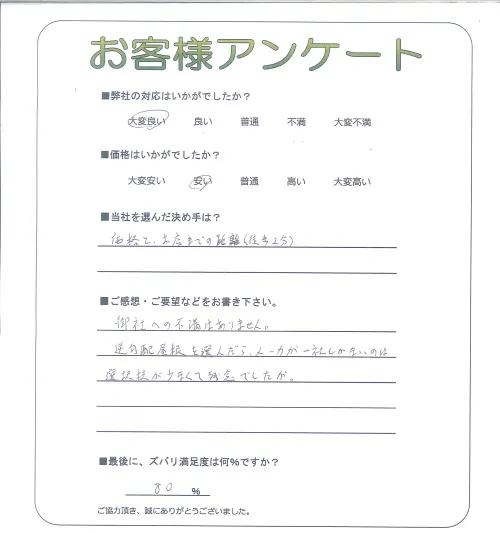 お客様アンケート
■弊社の対応はいかがでしたか？
大変良い 良い 普通 不満 大変不満
■価格はいかがでしたか？
大変安い 安い 普通 高い 大変高い
■当社を選んだ決め手は？
価格と、お店までの距離(徒歩25)
■ご感想・ご要望などをお書き下さい。
御社への不満はありません。
逆勾配屋根を選んだら、メーカーが一社しかないのは
選択技が少なくて残念でしたが。
■最後に、ズバリ満足度は何%ですか？
80 %
ご協力頂き、誠にありがとうございました。